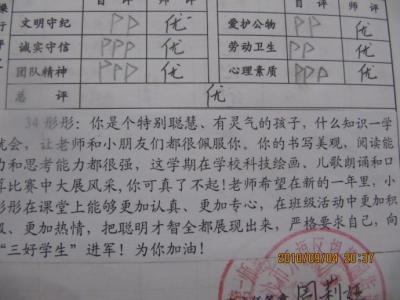 操 自 评 师 评 自 评 师 评
行 文明守纪 PP 优 爱护公物 PPP 优
评 诚实守信 PPP 优 劳动卫生 PPP 优
团队精神 PPP 优 心理素质 PPD 优
总 评 优
34 彤彤：你是个特别聪慧、有灵气的孩子，什么知识一学
就会，让老师和小朋友们都很佩服你。你的书写美观，阅读能
力和思考能力都很强，这学期在学校科技绘画、儿歌朗诵和口
算比赛中大展风采，你可真了不起！老师希望在新的一年里，小
彤彤在课堂上能够更加认真、更加专心，在班级活动中更加积
极、更加热情，把聪明才智全都展现出来，严格要求自己，向
“三好学生”进军！为你加油！
2010/09/04 20:37